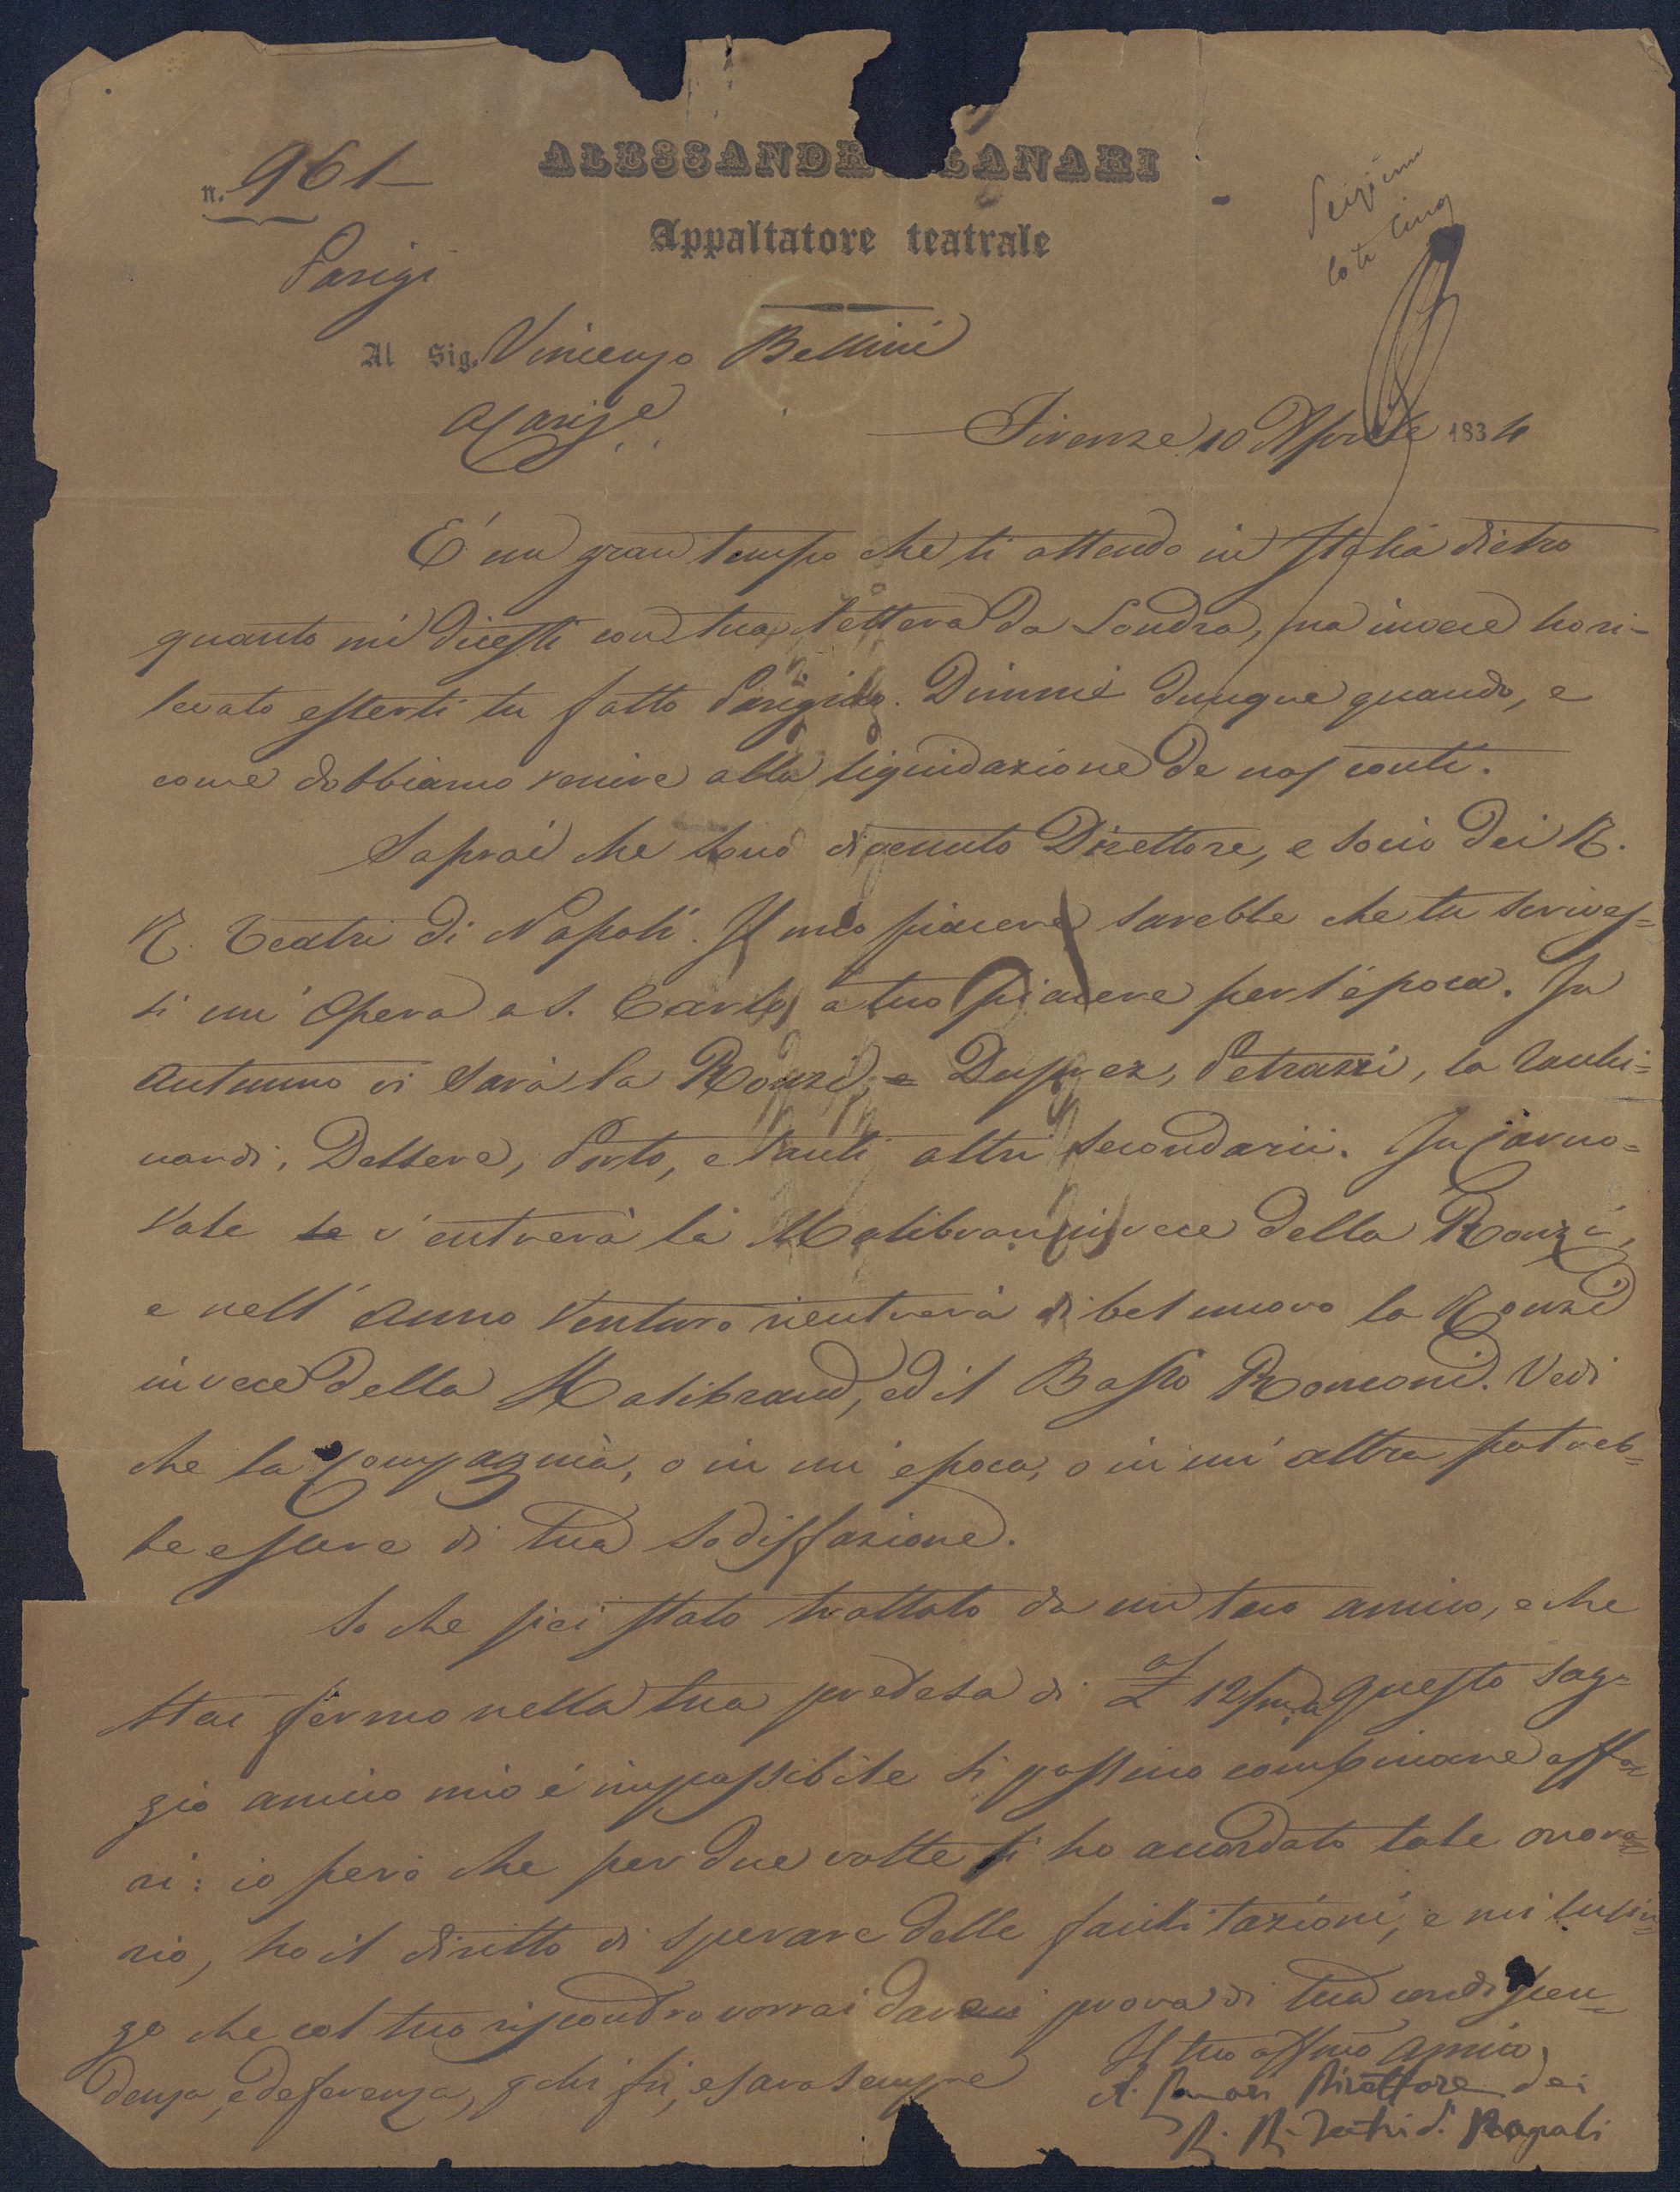 n. 961
ALESSANDR LANARI
Appaltatore teatrale
Parigi
Al Sig. Vincenzo Bellini
Parigi
Firenze 10 Aprile 1834
É un gran tempo che ti attendo in Italia dietro
quanto mi dicesti con tua lettera da Londra, ma invece ho ri-
levato esserti tu fatto Parigino. Dimmi dunque quando, e
come dobbiamo venire alla liquidazione de nos conti.
Saprai che sono divenuto Direttore, e socio dei R.
R. Teatri di Napoli. Il mio piacere sarebbe che tu scrives=
si un' Opera a S. Carlo a tuo piacere per l'época. In
Autunno vi sarà la Ronzi, e Duprez, Petrazzi, la Tachi=
nardi, Dellere, Porto, e tanti altri secondarii. In Carno=
vale se v'entrerà la Malibran invece della Ronzi,
e nell' Anno Venturo rientrerà di bel nuovo la Ronzi
invece della Malibrand, ed il Basso Ronconi. Vedi
che la Compagnia, o in un' epoca, o in un' altra potreb=
be essere di tua sodisfazione.
So che sei stato trattato da un tuo amico, e che
stai fermo nella tua pretesa di 12/m. a questo sag=
gio amico mio é impossibile si possino combinare affa=
ri: io peró che per due volte ti ho accordato tale onora=
rio, ho il diritto di sperare delle facilitazioni, e mi lusin=
go che col tuo riscontro vorrai darmi prova di tua condiscen=
denza, e deferenza, a chi fu, e sarà sempre
Il tuo affmo Amico
A. Lanari Direttore dei
R. R. Teatri di Napoli